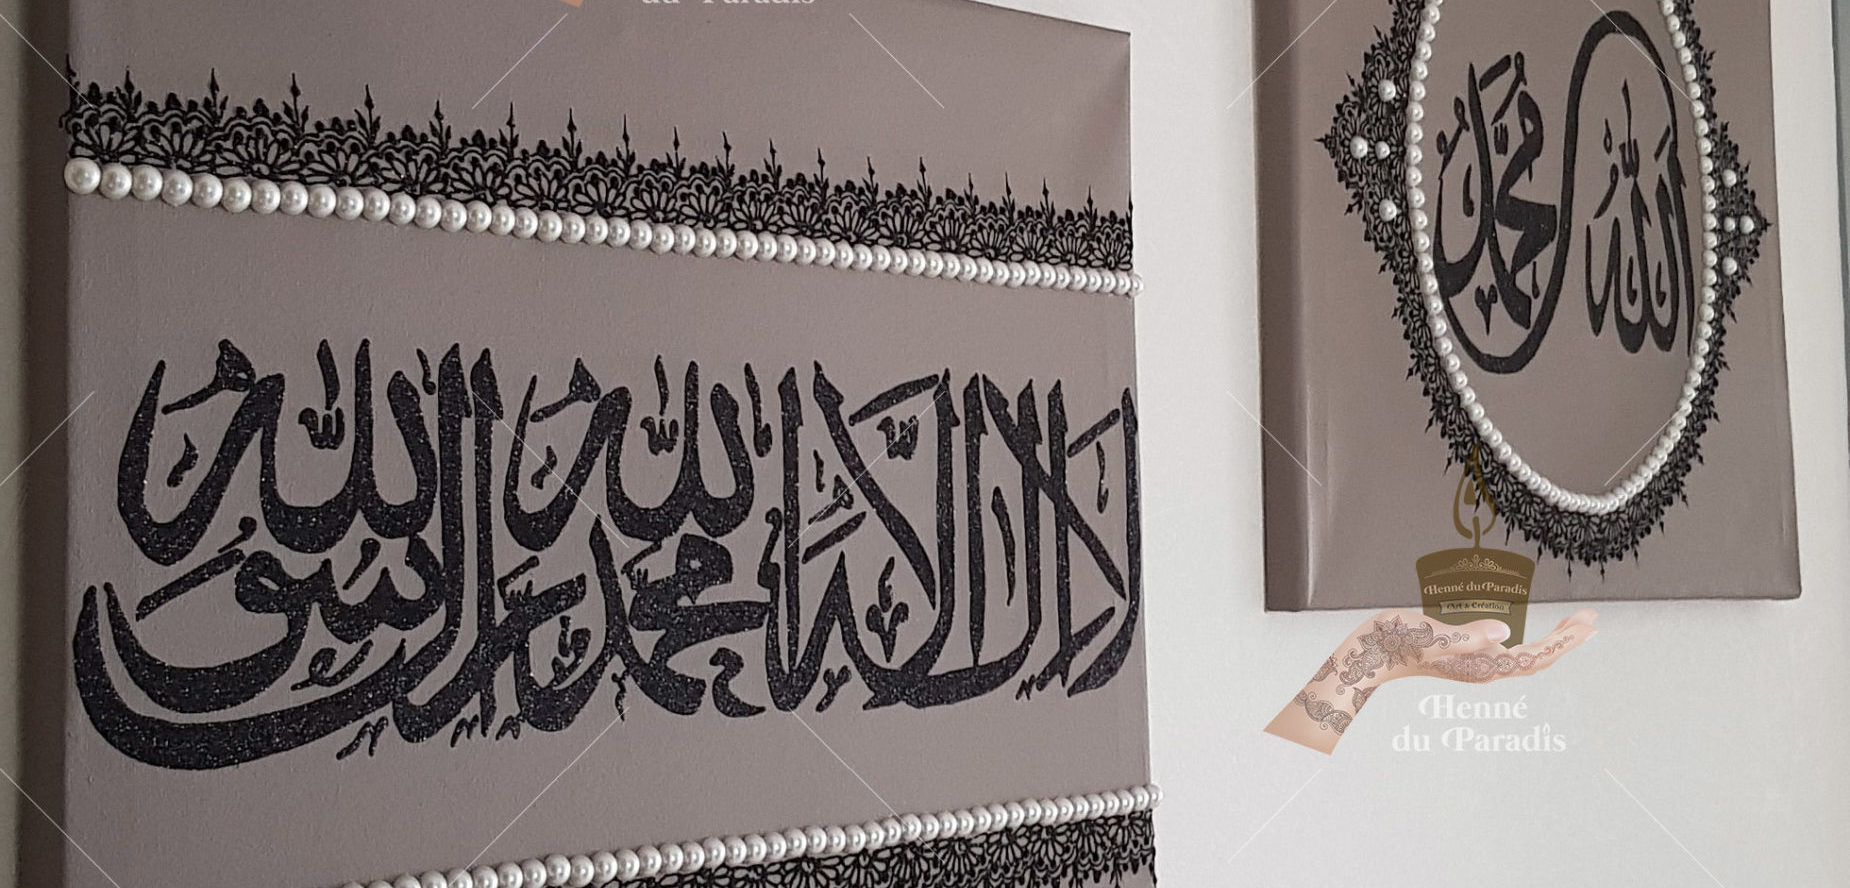 du Paradis
لا إله إلا الله محمد رسول الله
محمد الله
Henné du Paradis
Art & Création
Henné
du Paradis